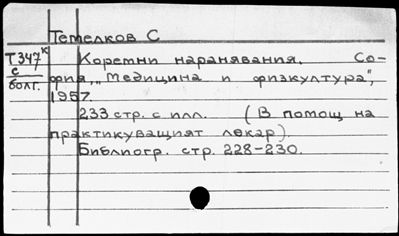 Тетелков С
Т347к Коремни наранявания. Со-
с фия, „Медицина и физкултура",
болг. 1957.
233 стр. с илл. (В помощ на
практикуващият лекар)
Библиогр. стр. 228-230.